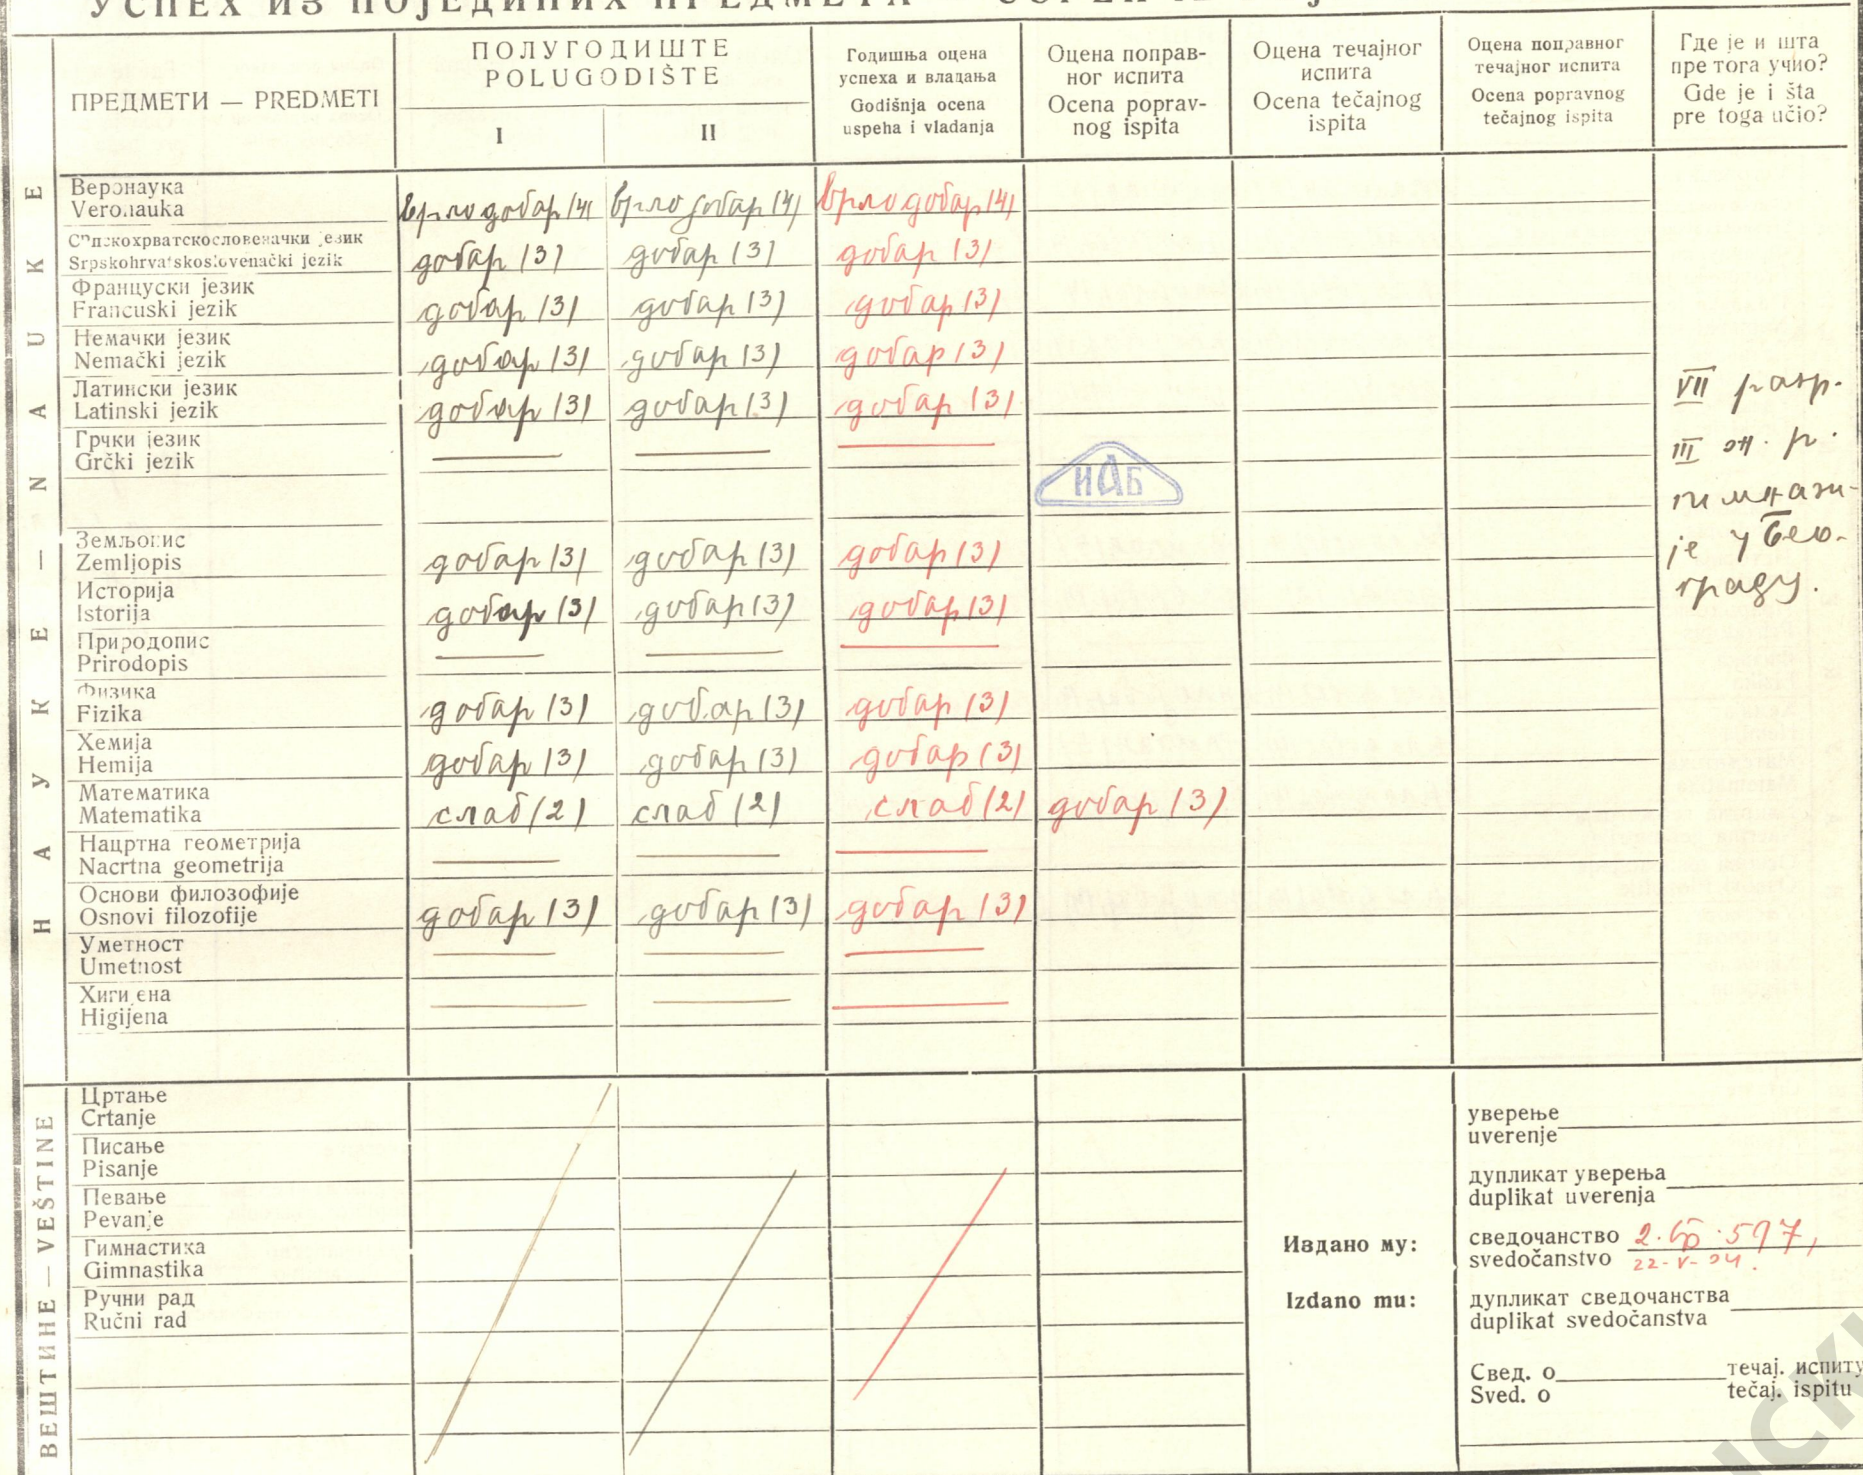 УСПЕХ ИЗ ПОЈЕДИНИХ ПРЕДМЕТА
ПРЕДМЕТИ — PREDMETI
ПОЛУГОДИШТЕ
POLUGODIŠTE
I
II
Годишња оцена
успеха и владања
Godišnja ocena
uspeha i vladanja
Оцена поправ-
ног испита
Ocena poprav-
nog ispita
Оцена течајног
испита
Ocena tečajnog
ispita
Оцена поправног
течајног испита
Ocena popravnog
tečajnog ispita
Где је и шта
пре тога учио?
Gde je i šta
pre toga učio?
НАУКЕ — NAUKE
Веронаука
Veronauka
врло добар (4) врло добар (4) врло добар (4)
Српскохрватскословеначки језик
Srpskohrvatskoslovenački jezik
добар (3) добар (3) добар (3)
Француски језик
Francuski jezik
добар (3) добар (3) добар (3)
Немачки језик
Nemački jezik
добар (3) добар (3) добар (3)
Латински језик
Latinski jezik
добар (3) добар (3) добар (3)
Грчки језик
Grčki jezik
ИАБ
Земљопис
Zemljopis
добар (3) добар (3) добар (3)
Историја
Istorija
добар (3) добар (3) добар (3)
Природопис
Prirodopis
Физика
Fizika
добар (3) добар (3) добар (3)
Хемија
Hemija
добар (3) добар (3) добар (3)
Математика
Matematika
слаб (2) слаб (2) слаб (2) добар (3)
Нацртна геометрија
Nacrtna geometrija
Основи филозофије
Osnovi filozofije
добар (3) добар (3) добар (3)
Уметност
Umetnost
Хигијена
Higijena
VII разр.
III ж. р.
гимнази-
је у Бео-
граду.
ВЕШТИНЕ — VEŠTINE
Цртање
Crtanje
Писање
Pisanje
Певање
Pevanje
Гимнастика
Gimnastika
Ручни рад
Ručni rad
Издано му:
Izdano mu:
уверење
uverenje
дупликат уверења
duplikat uverenja
сведочанство
svedočanstvo
597,
22-V-34.
дупликат сведочанства
duplikat svedočanstva
Свед. о течај. испиту
Sved. o tečaj. ispitu